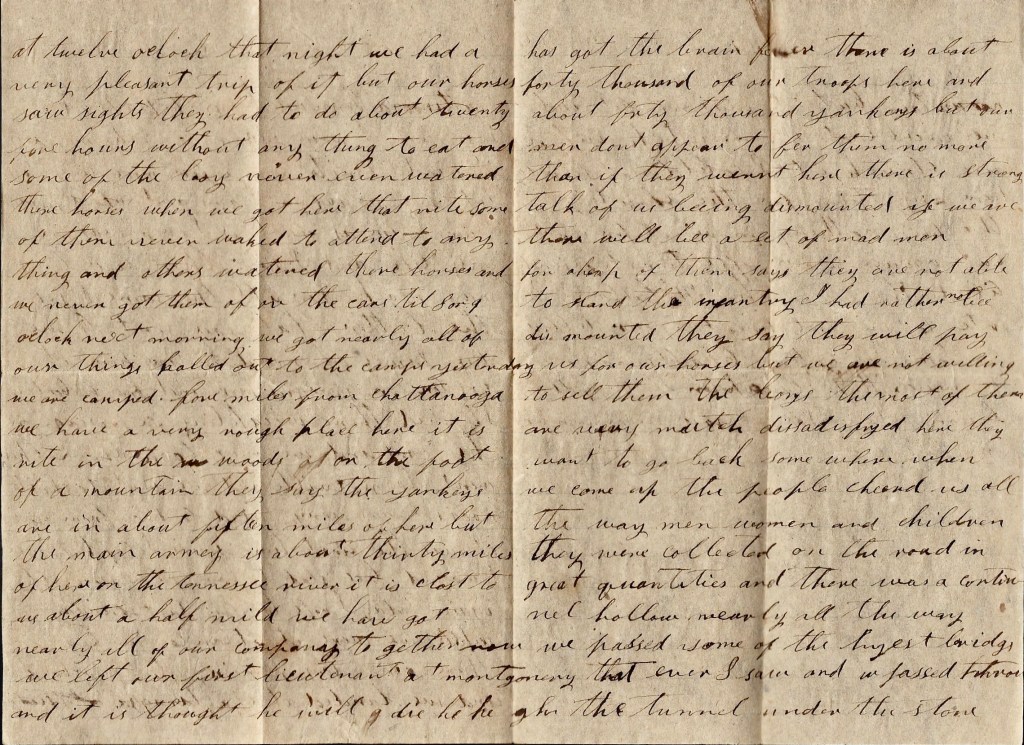 at twelve oclock that night we had a
very pleasant trip of it but our horses
saw sights they had to do about twenty
fore hours without any thing to eat and
some of the boy never even watered
there horses when we got here that nite some
of them never waked to attend to any
thing and others watered there horses and
we never got them of on the cars til 8 or 9
oclock next morning we got nearly all of
our things halled out to the camps yesterday
we are camped fore miles from chattanooga
we have a very rough place here it is
rite in the woods on the foot
of a mountain they say the yankeys
are in about fiften miles of here but
the main armey is about thirty miles
of here on the tennessee river it is clost to
us about a half mild we have got
nearly all of our company to gether now
we left our first lieutenant at montgomery
and it is thought he will die he he
has got the brain fever there is about
forty thousand of our troops here and
about forty thousand yankeys but our
men dont appear to fer them no more
than if they wernt here there is strong
talk of us beeing dismounted if we are
there will bee a set of mad men
for a heap of them says they are not able
to stand the infantry I had rather not bee
dismounted they say they will pay
us for our horses but we are not willing
to sell them the boys the most of them
are very mutch dissadisfyed here they
want to go back some where when
we come up the people cheerd us all
the way men women and children
they were collected on the road in
great quantities and there was a contin
nel hollow nearly all the way
we passed some of the hyest bridgs
that ever I saw and we passed through
the tunnel under the stone